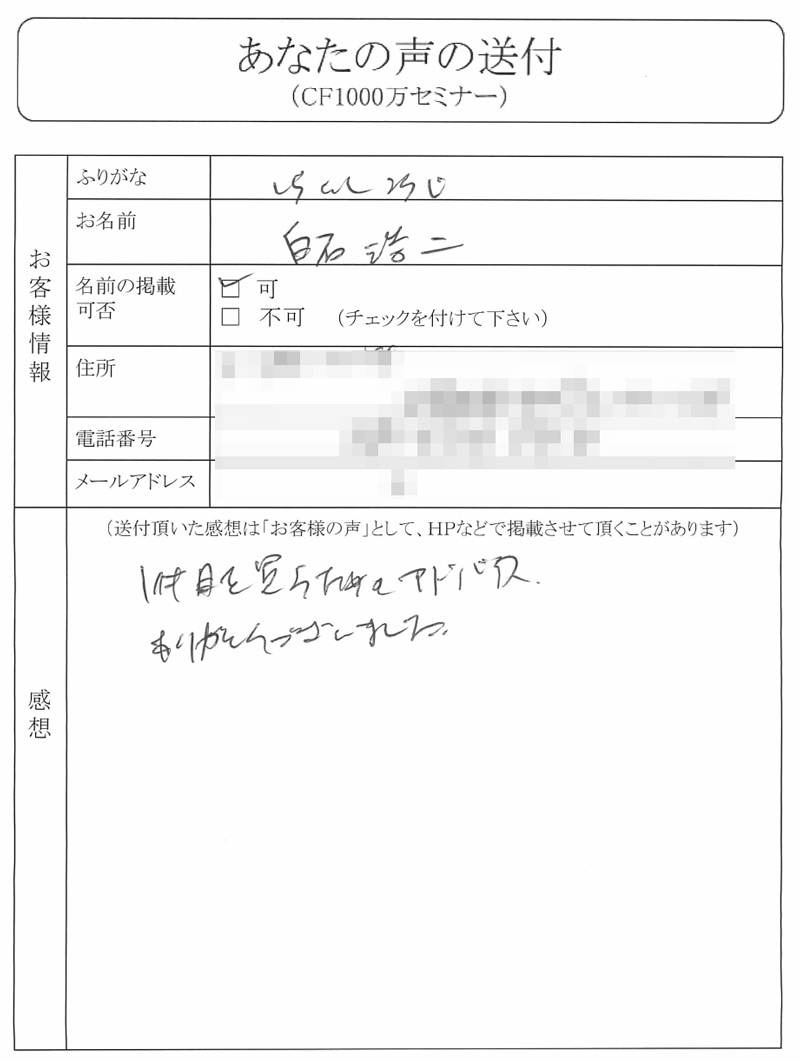 あなたの声の送付
(CF1000万セミナー)
お客様情報
ふりがな
しらいし こうじ
お名前
白石 浩二
名前の掲載可否
可
不可 (チェックを付けて下さい)
住所
電話番号
メールアドレス
感想
(送付頂いた感想は「お客様の声」として、HPなどで掲載させて頂くことがあります)
1件目を買うためのアドバイス.
ありがとうございました.